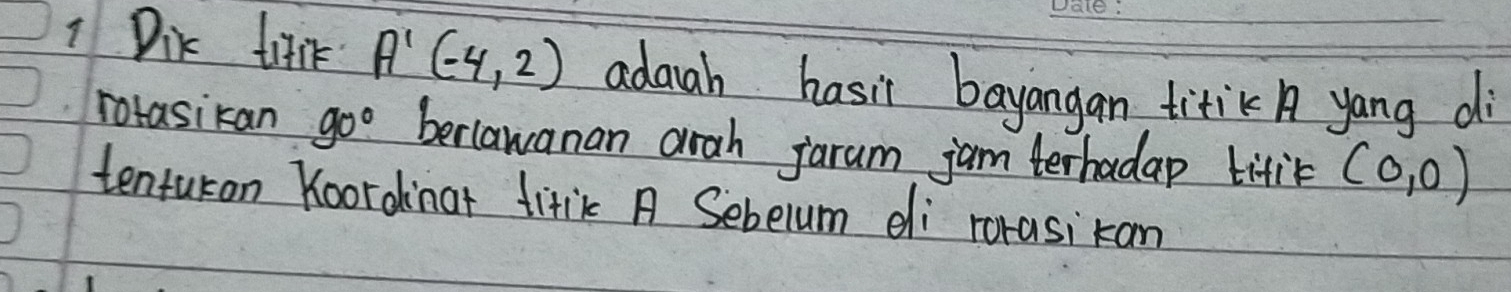 Date:
1 Dik titik A' (-4,2) adalah hasil bayangan titik A yang di
rotasikan 90° berlawanan arah jarum jam terhadap titik (0,0)
tentukan Koordinat titik A Sebelum di rotasikan